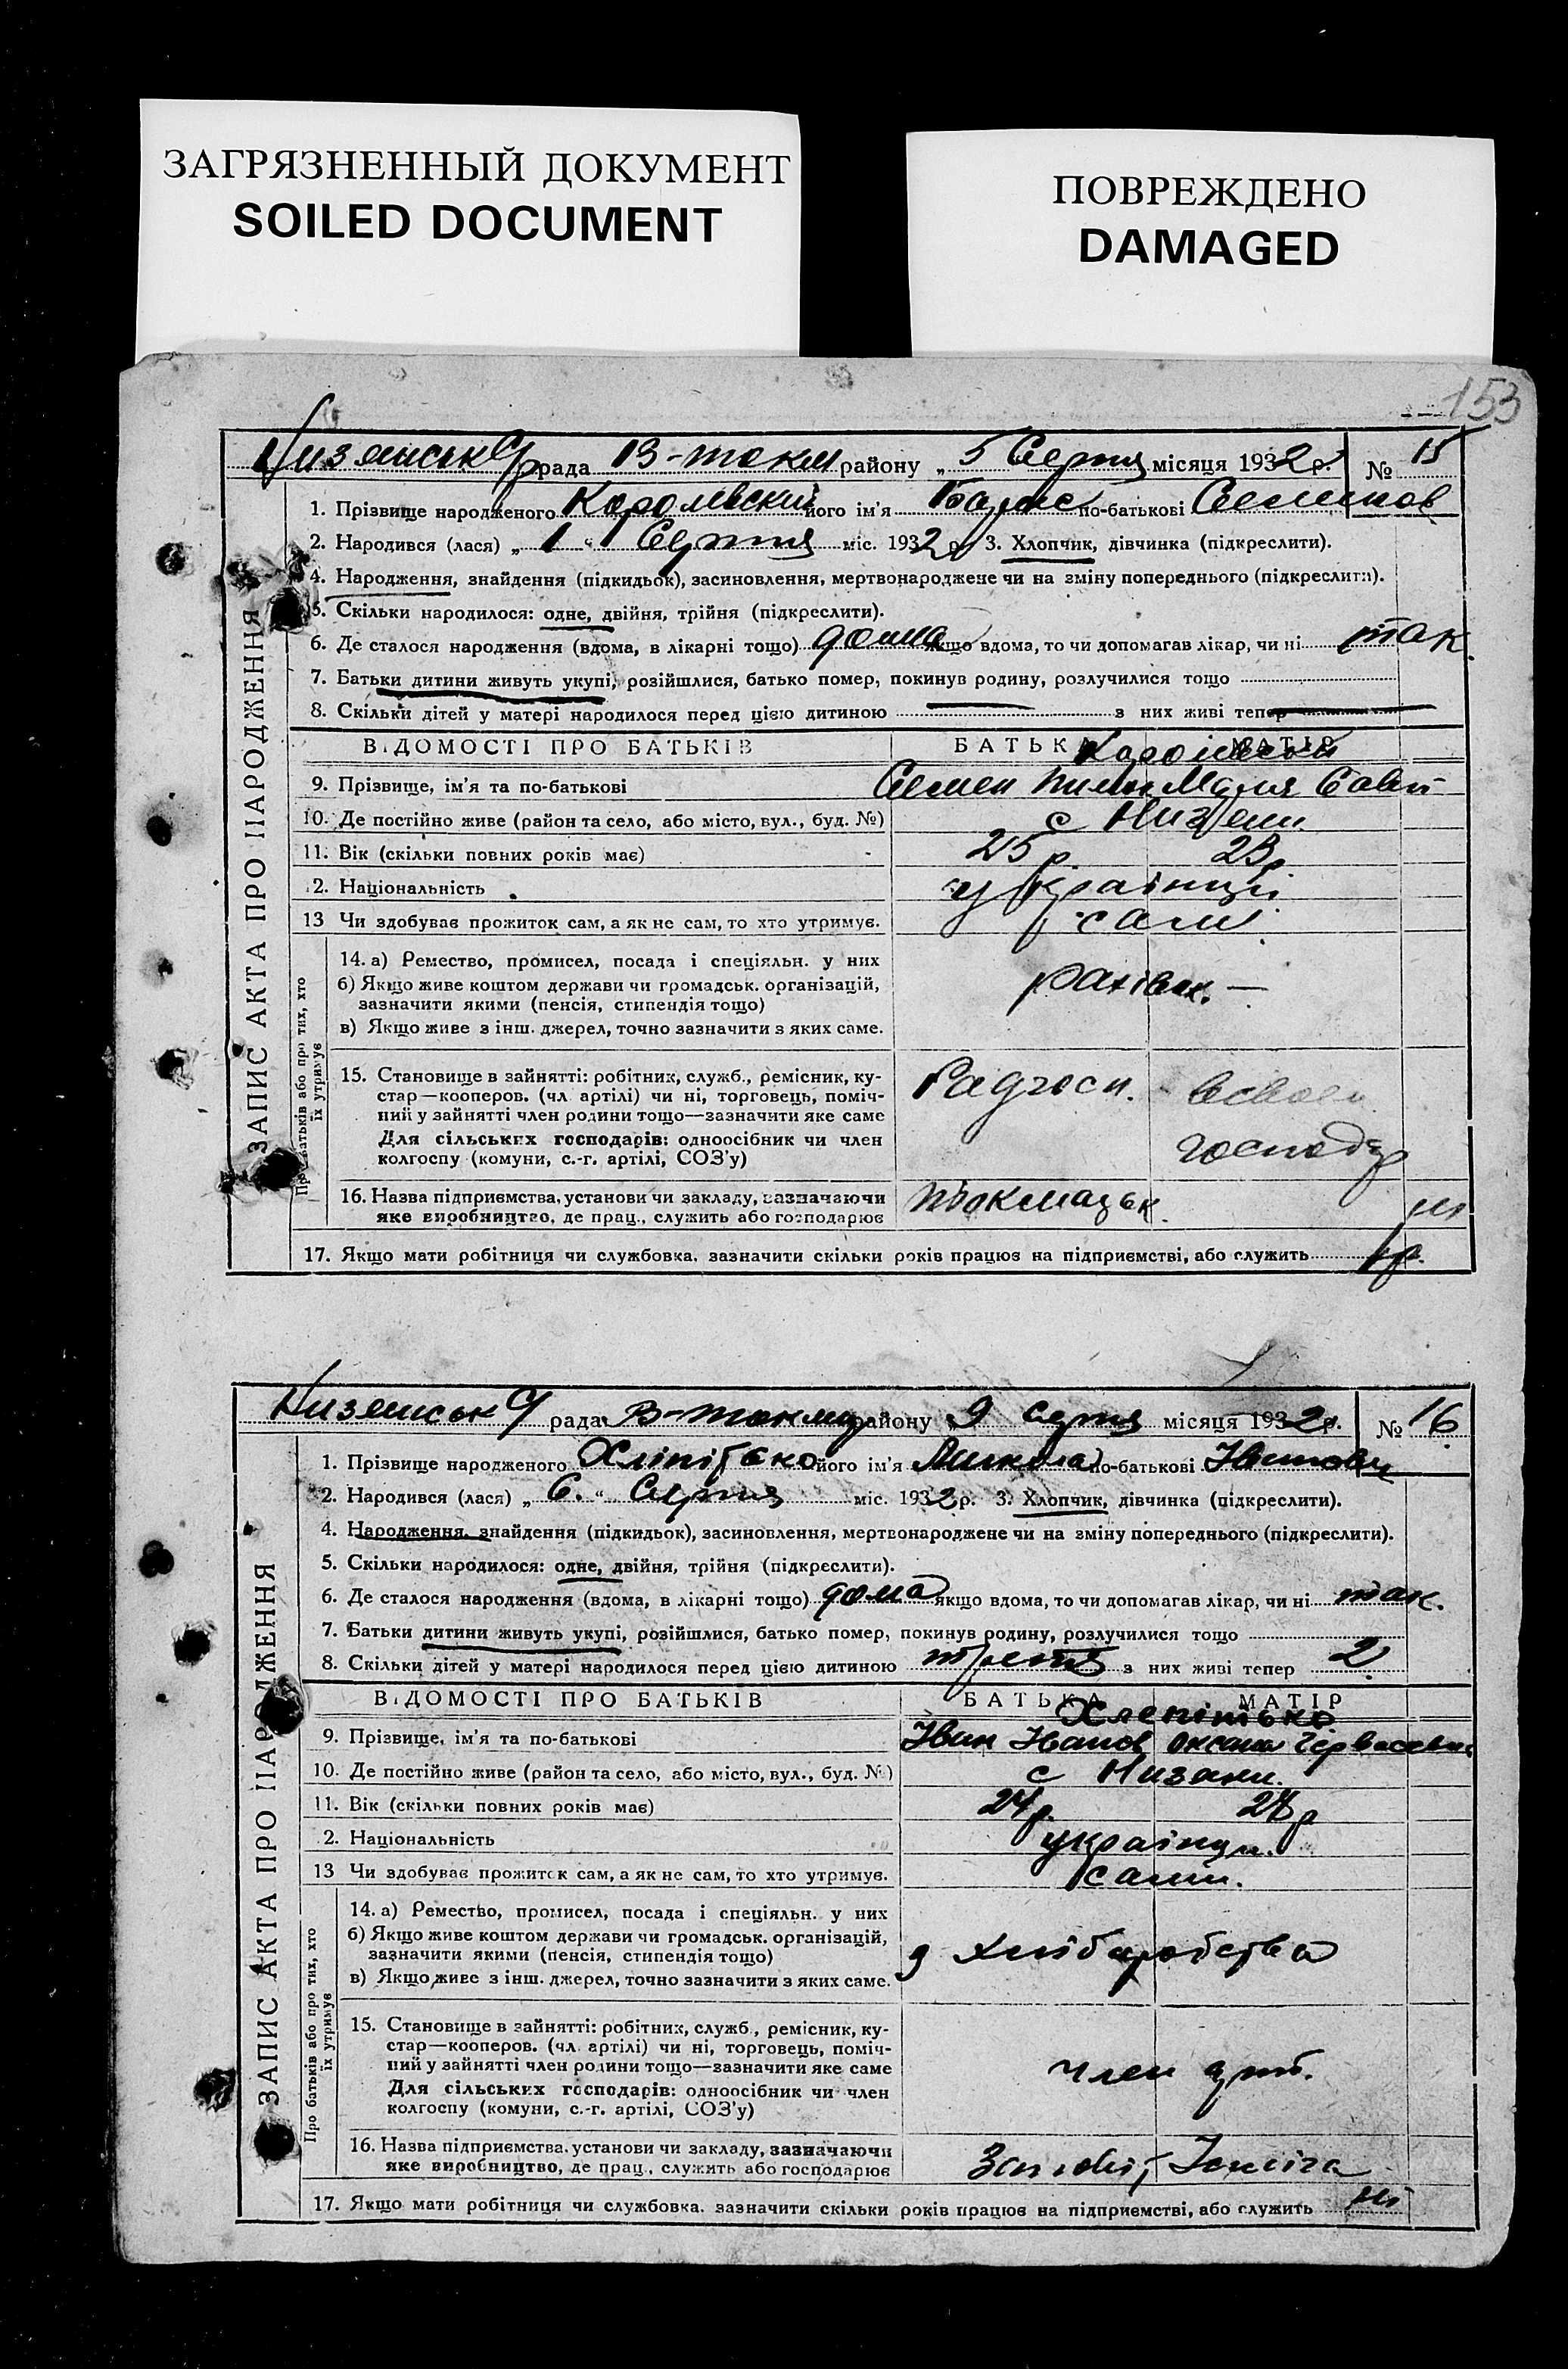 ЗАГРЯЗНЕННЫЙ ДОКУМЕНТ
SOILED DOCUMENT
ПОВРЕЖДЕНО
DAMAGED
153
ЗАПИС АКТА ПРО НАРОДЖЕННЯ
рада В-токм району „5 Серпня місяця 1932 р. № 15
1. Прізвище народженого Королевский його ім'я Борис по-батькові
2. Народився (лася) „1“ Серпня міс. 1932 р. 3. Хлопчик, дівчинка (підкреслити).
4. Народження, знайдення (підкидьок), засиновлення, мертвонароджене чи на зміну попереднього (підкреслити).
5. Скільки народилося: одне, двійня, трійня (підкреслити).
6. Де сталося народження (вдома, в лікарні тощо) дома якщо вдома, то чи допомагав лікар, чи ні так
7. Батьки дитини живуть укупі, розійшлися, батько помер, покинув родину, розлучилися тощо
8. Скільки дітей у матері народилося перед цією дитиною — з них живі тепер —
ВІДОМОСТІ ПРО БАТЬКІВ БАТЬКА МАТІР
9. Прізвище, ім'я та по-батькові Семен Мария
10. Де постійно живе (район та село, або місто, вул., буд. №) с Низяни
11. Вік (скільки повних років має) 25 р. 23 р
12. Національність українці
13 Чи здобував прожиток сам, а як не сам, то хто утримує. сами
Про батьків або про тих, хто їх утримує
14. а) Ремество, промисел, посада і спеціяльн. у них
б) Якщо живе коштом держави чи громадськ. організацій,
зазначити якими (пенсія, стипендія тощо)
в) Якщо живе з інш. джерел, точно зазначити з яких саме.
15. Становище в зайнятті: робітник, служб., ремісник, ку-
стар—кооперов. (чл. артілі) чи ні, торговець, поміч-
ний у зайнятті член родини тощо—зазначити яке саме
Для сільських господарів: одноосібник чи член
колгоспу (комуни, с.-г. артілі, СОЗ'у)
Радгосп.
господар
16. Назва підприємства, установи чи закладу, зазначаючи
яке виробництво, де прац., служить або господарює
Токмацьк.
17. Якщо мати робітниця чи службовка, зазначити скільки років працює на підприємстві, або служить
ЗАПИС АКТА ПРО НАРОДЖЕННЯ
рада В-токму району 9 серпня місяця 1932 р. № 16
1. Прізвище народженого його ім'я Микола по-батькові Іванович
2. Народився (лася) „6.“ Серпня міс. 1932 р. 3. Хлопчик, дівчинка (підкреслити).
4. Народження, знайдення (підкидьок), засиновлення, мертвонароджене чи на зміну попереднього (підкреслити).
5. Скільки народилося: одне, двійня, трійня (підкреслити).
6. Де сталося народження (вдома, в лікарні тощо) дома якщо вдома, то чи допомагав лікар, чи ні так.
7. Батьки дитини живуть укупі, розійшлися, батько помер, покинув родину, розлучилися тощо
8. Скільки дітей у матері народилося перед цією дитиною третя з них живі тепер 2
ВІДОМОСТІ ПРО БАТЬКІВ БАТЬКА МАТІР
Хлепітько
9. Прізвище, ім'я та по-батькові Іван Іванов Оксана
10. Де постійно живе (район та село, або місто, вул., буд. №) с Низяни.
11. Вік (скільки повних років має)
12. Національність українці.
13 Чи здобував прожиток сам, а як не сам, то хто утримує. сами.
Про батьків або про тих, хто їх утримує
14. а) Ремество, промисел, посада і спеціяльн. у них
б) Якщо живе коштом держави чи громадськ. організацій,
зазначити якими (пенсія, стипендія тощо)
в) Якщо живе з інш. джерел, точно зазначити з яких саме.
з хліборобства
15. Становище в зайнятті: робітник, служб., ремісник, ку-
стар—кооперов. (чл. артілі) чи ні, торговець, поміч-
ний у зайнятті член родини тощо—зазначити яке саме
Для сільських господарів: одноосібник чи член
колгоспу (комуни, с.-г. артілі, СОЗ'у)
член арт.
16. Назва підприємства, установи чи закладу, зазначаючи
яке виробництво, де прац., служить або господарює
Заповіт Ілліча
17. Якщо мати робітниця чи службовка, зазначити скільки років працює на підприємстві, або служить ні